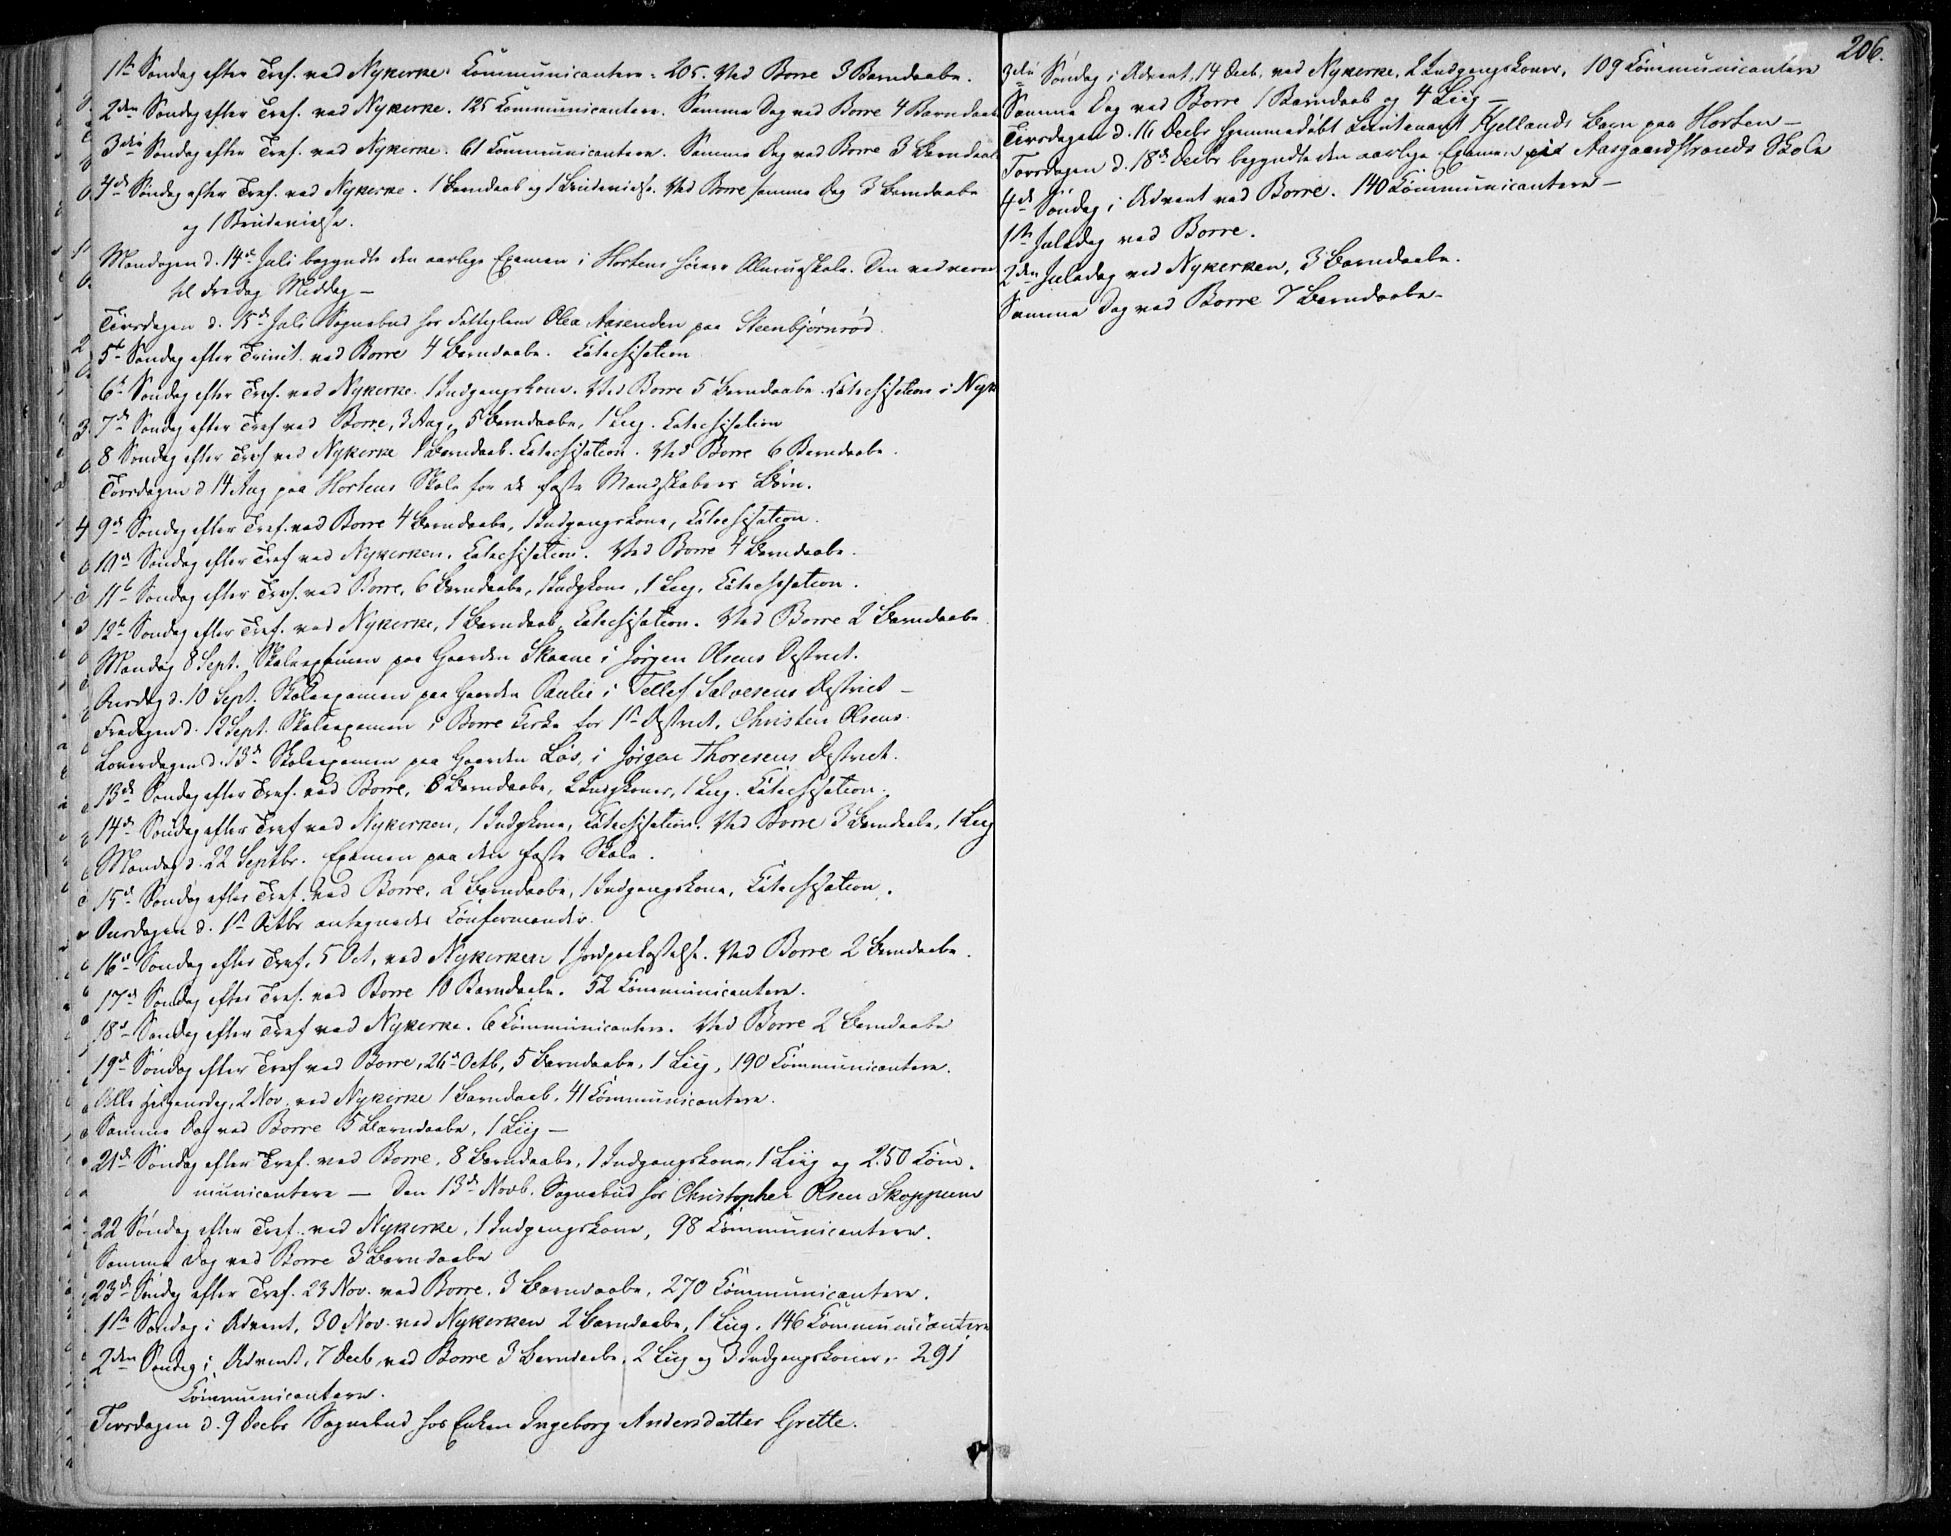 1ste Søndag efter Tref. ved Nykirke. Communicantere. 205. Ved Borre 3 Barndaabe.
2den Søndag efter Tref. ved Nykirke. 125 Communicantere. Samme Dag ved Borre 4 Barndaabe
3die Søndag efter Tref. ved Nykirke. 61 Communicantere. Samme Dag ved Borre 3 Barndaab
4de Søndag efter Tref. ved Nykirke. 1 Barndaab og 1 Brudevielse. Ved Borre samme Dag 3 Barndaabe
og 1 Brudevielse.
Mandagen d. 14de Juli begyndte den aarlige Examen i Hortens høiere Almueskole. Den vedvarer
til Fredag Middag —
Tirsdagen d. 15de Juli Sognebud hos Fattiglem Olea Aasenden paa Steenbjørnrød.
5te Søndag efter Trinit. ved Borre 4 Barndaabe. Catechisation
6te Søndag efter Tref. ved Nykirke. 1 Indgangskone. Ved Borre 5 Barndaabe. Catechisation i Nyk
7de Søndag efter Tref ved Borre, 3 Aug, 5 Barndaabe, 1 Liig. Catechisation
8 Søndag efter Tref ved Nykirke 1 Barndaab. Catechisation. Ved Borre 6 Barndaabe.
Torsdagen d 14 Aug paa Hortens Skole for de faste Mandskabers Børn.
9de Søndag efter Tref. ved Borre 4 Barndaabe, 1 Indgangskone, Catechisation.
10de Søndag efter Tref ved Nykirken. Catechisation. Ved Borre 4 Barndaabe.
11te Søndag efter Tref. ved Borre, 6 Barndaabe, 1 Indgkone, 1 Liig, Catechisation.
12te Søndag efter Tref. ved Nykirke, 1 Barndaab, Catechisation. Ved Borre 2 Barndaabe.
Mandag 8 Sept. Skoleexamen paa Gaarden Skaane i Jørgen Olsens District.
Onsdag d. 10 Sept. Skoleexamen paa Gaarden Paulie i Tellef Salvesens District —
Fredagen d. 12 Sept. Skoleexamen i Borre Kirke for 1ste District, Christen Olsens.
Løverdagen d. 13de Skoleexamen paa Gaarden Løs, i Jørgen Thoresens District.
13de Søndag efter Tref. ved Borre, 8 Barndaabe, 2 Indgkoner, 1 Liig. Catechisation.
14de Søndag efter Tref ved Nykirken, 1 Indgkone, Catechisation. Ved Borre 3 Barndaabe, 1 Liig
Mandag d. 22 Septbr. Examen paa den faste Skole.
15de Søndag efter Tref. ved Borre, 2 Barndaabe, 1 Indgangskone, Catechisation.
Onsdagen d. 1ste Octbr antegnedes Confirmander.
16de Søndag efter Tref. 5 Oct, ved Nykirken 1 Jordpaakastelse. Ved Borre 2 Barndaabe.
17de Søndag efter Tref. ved Borre 10 Barndaabe. 52 Communicantere.
18de Søndag efter Tref ved Nykirke. 6 Communicantere. Ved Borre 2 Barndaabe
19de Søndag efter Tref ved Borre, 26de Octb, 5 Barndaabe, 1 Liig, 190 Communicantere.
Alle Helgensdag, 2 Nov. ved Nykirke 1 Barndaab, 41 Communicantere.
Samme Dag ved Borre 5 Barndaabe, 1 Liig —
21de Søndag efter Tref. ved Borre, 8 Barndaabe, 1 Indgangskone, 1 Liig og 250 Com-
municantere — Den 13de Novb. Sognebud hos Christopher Olsen Skoppum
22 Søndag efter Tref. ved Nykirke, 1 Indgangskone, 98 Communicantere.
Samme Dag ved Borre 3 Barndaabe
23de Søndag efter Tref. 23 Nov. ved Borre, 3 Barndaabe, 270 Communicantere.
1ste Søndag i Advent, 30 Nov. ved Nykirken 2 Barndaabe, 1 Liig. 146 Communicantere
2den Søndag i Advent, 7 Decb, ved Borre 3 Barndaabe, 2 Liig og 3 Indgangskoner, 291
Communicantere.
Tirsdagen d. 9 Decbr Sognebud hos Enken Ingeborg Andersdatter Grette.
206.
3die Søndag i Advent, 14 Decb, ved Nykirke, 2 Indgangskoner, 109 Communicantere
Samme Dag ved Borre 1 Barndaab og 4 Liig —
Tirsdagen d. 16 Decbr hjemmedøbt Lieutenant Kjellands Barn paa Horten —
Torsdagen d. 18de Decbr begyndte den aarlige Examen ved Aasgaardstrands Skole
4de Søndag i Advent ved Borre. 140 Communicantere —
1ste Juledag ved Borre.
2den Juledag ved Nykirken, 3 Barndaabe.
Samme Dag ved Borre 7 Barndaabe —